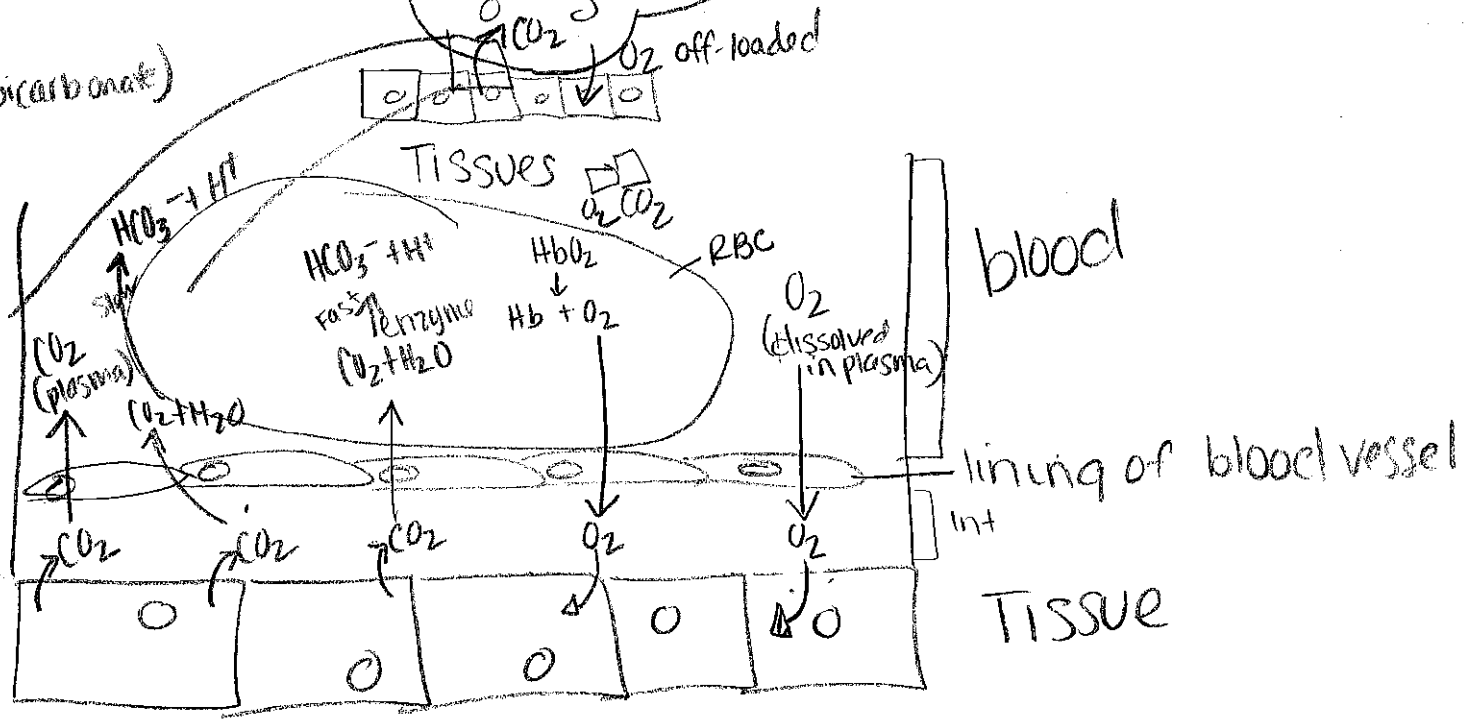 CO2
O2 off-loaded
bicarbonate)
Tissues
O2 CO2
HCO3⁻ + H⁺
slow
CO2
(plasma)
CO2+H2O
HCO3⁻ + H⁺
Fast enzyme
CO2+H2O
HbO2
Hb + O2
RBC
O2
(dissolved
in plasma)
blood
lining of blood vessel
Int
CO2
CO2
CO2
O2
O2
Tissue